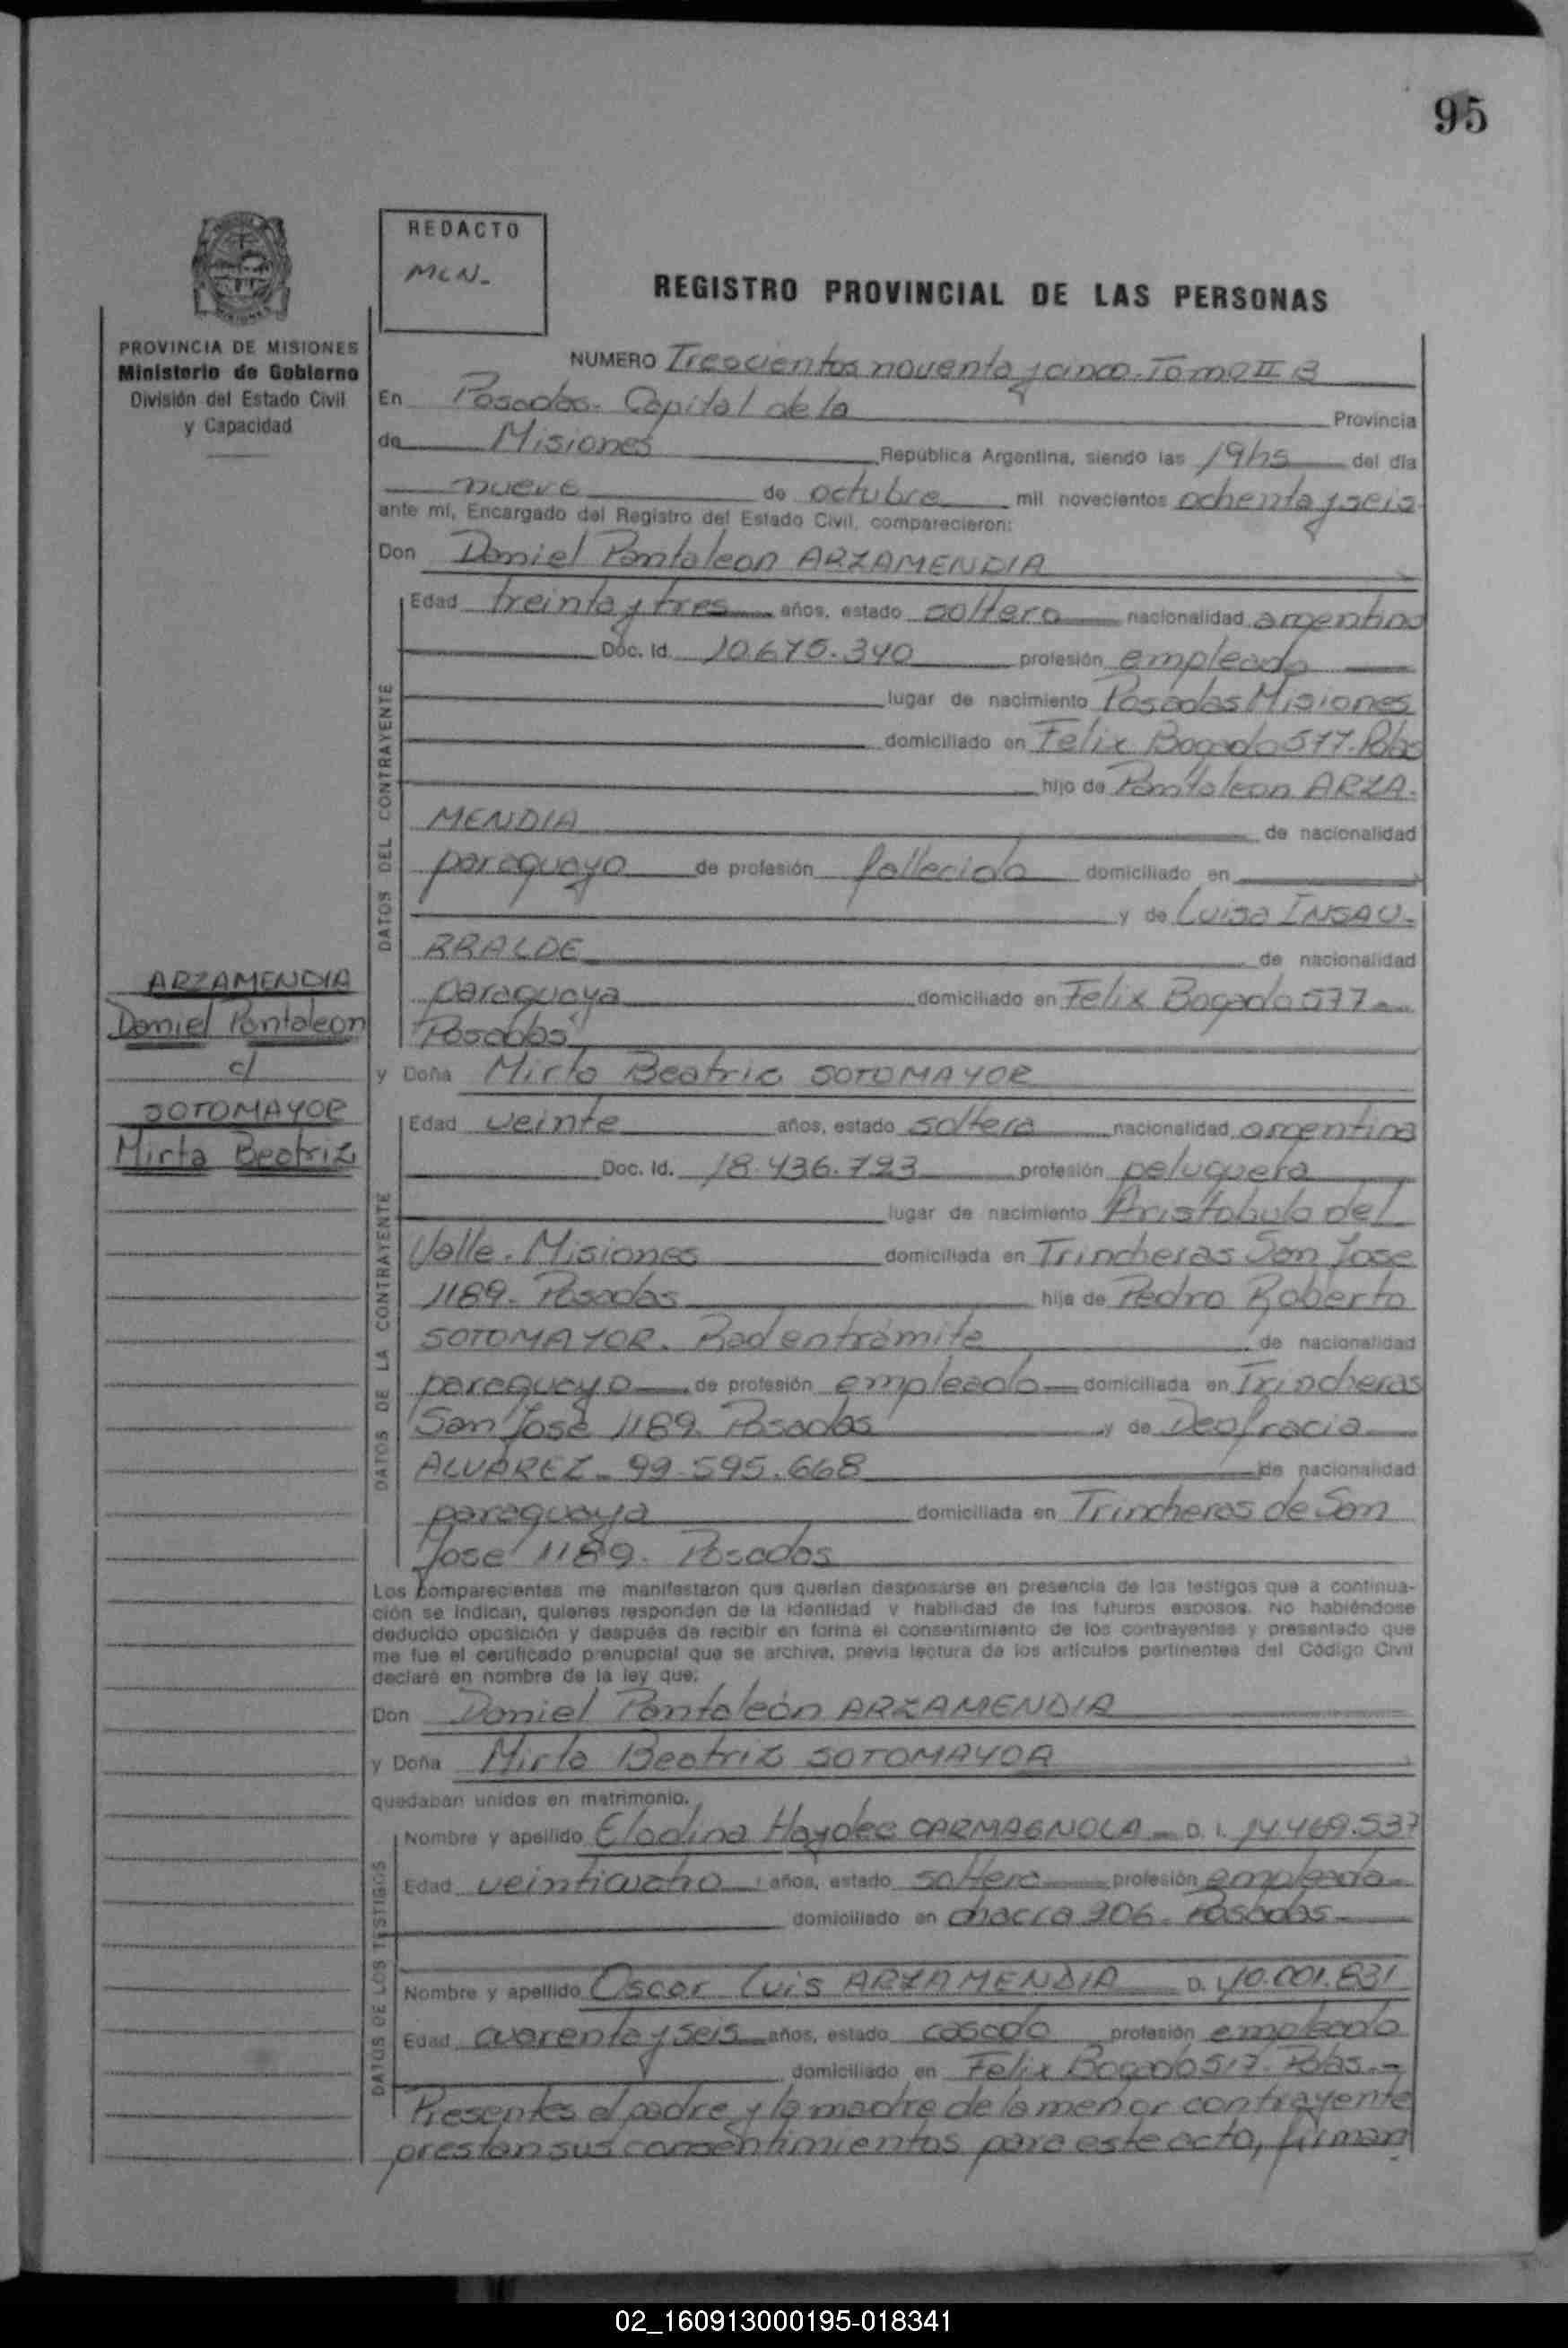 95
REDACTO
MCN-
REGISTRO PROVINCIAL DE LAS PERSONAS
PROVINCIA DE MISIONES
Ministerio de Gobierno
División del Estado Civil
y Capacidad
NUMERO Trescientos noventa y cinco. Tomo II B
En Posadas. Capital de la Provincia
de Misiones República Argentina, siendo las 19hs del día
nueve de octubre mil novecientos ochenta y seis
ante mí, Encargado del Registro del Estado Civil, comparecieron:
Don Daniel Pantaleon ARZAMENDIA
DATOS DEL CONTRAYENTE
Edad treinta y tres años, estado soltero nacionalidad argentino
Doc. Id. 10.675.340 profesión empleado
lugar de nacimiento Posadas Misiones
domiciliado en Felix Bogado 577. Pdas
hijo de Pantaleon ARZA-
MENDIA de nacionalidad
paraguayo de profesión fallecido domiciliado en
y de Luisa INSAU-
RRALDE de nacionalidad
paraguaya domiciliado en Felix Bogado 577
Posadas
ARZAMENDIA
Daniel Pantaleon
c/
SOTOMAYOR
Mirta Beatriz
y Doña Mirta Beatriz SOTOMAYOR
DATOS DE LA CONTRAYENTE
Edad veinte años, estado soltera nacionalidad argentina
Doc. Id. 18.436.723 profesión peluquera
lugar de nacimiento Aristobulo del
Valle. Misiones domiciliada en Trincheras San Jose
1189. Posadas hija de Pedro Roberto
SOTOMAYOR. Rad en trámite de nacionalidad
paraguayo de profesión empleado domiciliada en Trincheras
San José 1189. Posadas y de Deofracia
ALVAREZ - 99.595.668 de nacionalidad
paraguaya domiciliada en Trincheras de San
Jose 1189. Posadas
Los comparecientes me manifestaron que querían desposarse en presencia de los testigos que a continua-
ción se indican, quienes responden de la identidad y habilidad de los futuros esposos. No habiéndose
deducido oposición y después de recibir en forma el consentimiento de los contrayentes y presentado que
me fue el certificado prenupcial que se archiva, previa lectura de los artículos pertinentes del Código Civil
declaré en nombre de la ley que:
Don Daniel Pantaleón ARZAMENDIA
y Doña Mirta Beatriz SOTOMAYOR
quedaban unidos en matrimonio.
DATOS DE LOS TESTIGOS
Nombre y apellido Eladina Haydee CARMAGNOLA - D. I. 14.469.537
Edad veinticuatro años, estado soltera profesión empleada
domiciliado en chacra 206. Posadas
Nombre y apellido Oscar Luis ARZAMENDIA D. I. 10.001.831
Edad cuarenta y seis años, estado casado profesión empleado
domiciliado en Felix Bogado 517. Pdas.-
Presentes el padre y la madre de la menor contrayente
prestan sus consentimientos para este acto, firman
02_160913000195-018341